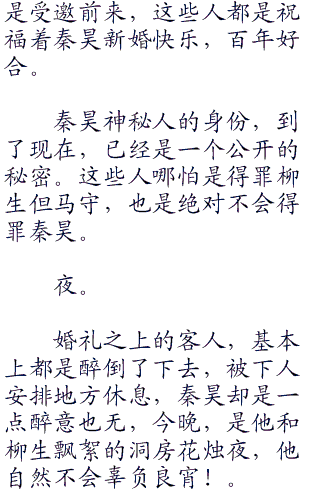 是受邀前来，这些人都是祝
福着秦昊新婚快乐，百年好
合。
秦昊神秘人的身份，到
了现在，已经是一个公开的
秘密。这些人哪怕是得罪柳
生但马守，也是绝对不会得
罪秦昊。
夜。
婚礼之上的客人，基本
上都是醉倒了下去，被下人
安排地方休息，秦昊却是一
点醉意也无，今晚，是他和
柳生飘絮的洞房花烛夜，他
自然不会辜负良宵！。